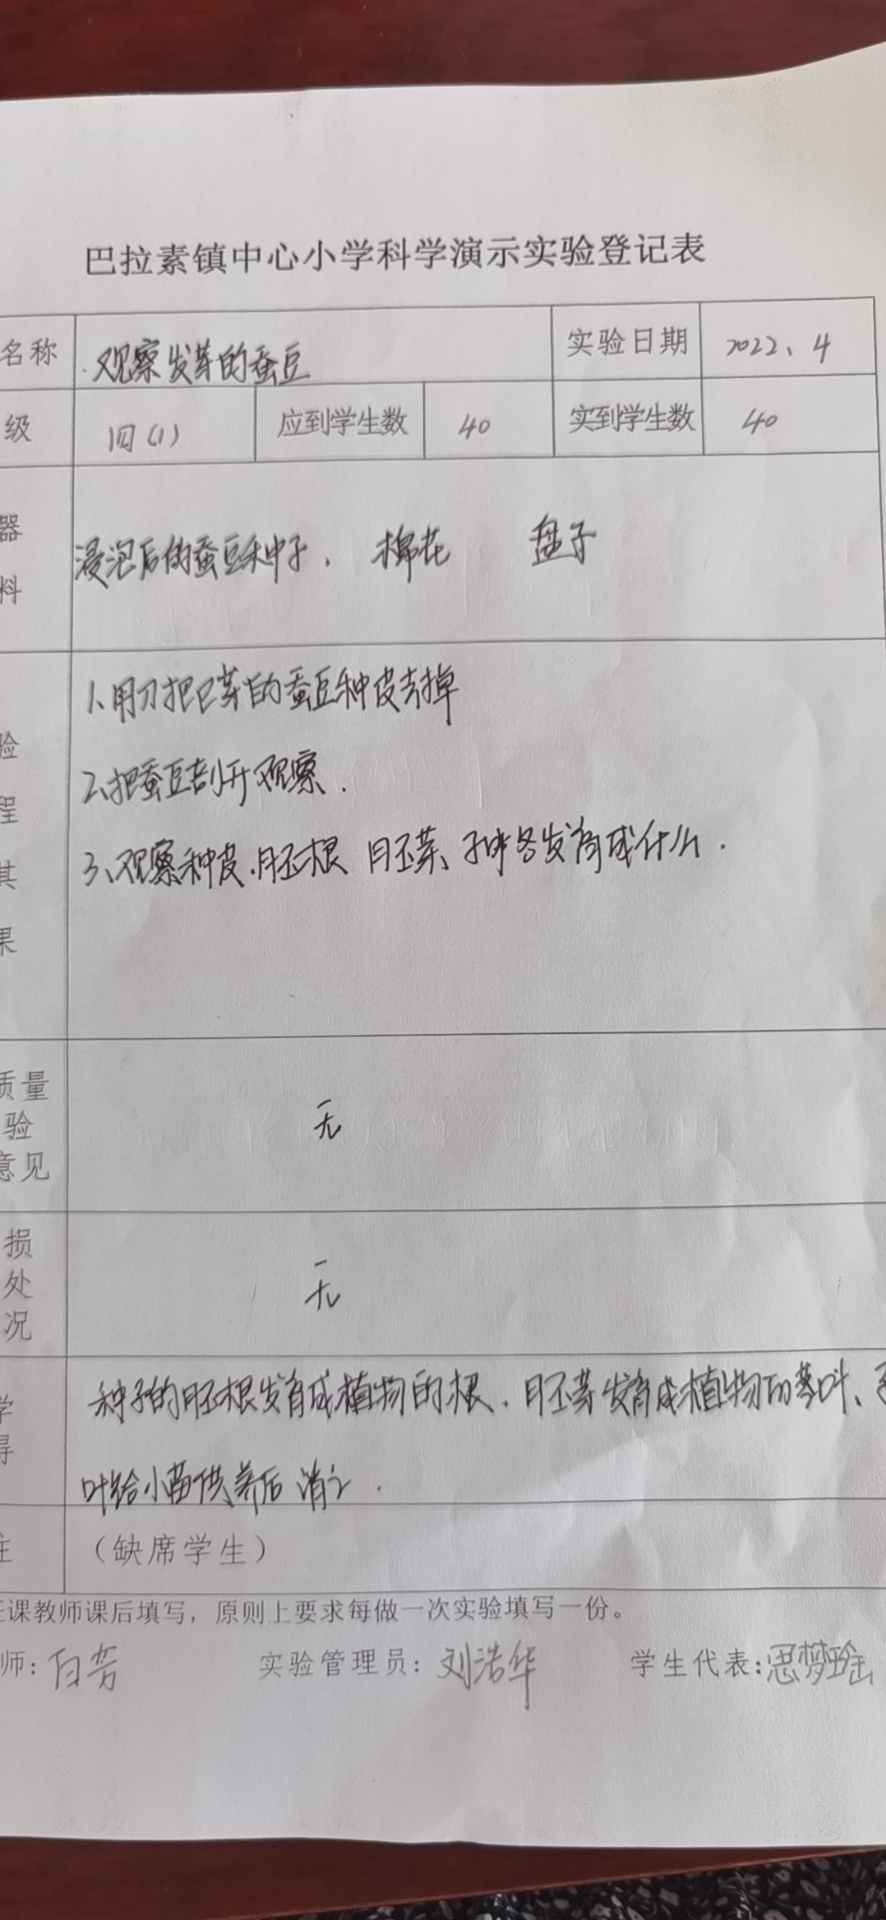 巴拉素镇中心小学科学演示实验登记表
名称 观察发芽的蚕豆 实验日期 2022、4
级 四(1) 应到学生数 40 实到学生数 40
器
料
浸泡后的蚕豆种子, 棉花 盘子
1、用刀把已芽的蚕豆种皮去掉
2、把蚕豆剖开观察.
3、观察种皮.胚根 胚芽、子叶各发育成什么.
验
程
其
果
质量
验
意见
无
损
处
况
无
学
得
种子的胚根发育成植物的根、胚芽发育成植物的茎叶、子
叶给小苗供养后消亡.
注 (缺席学生)
任课教师课后填写，原则上要求每做一次实验填写一份。
师: 白芳 实验管理员: 刘浩华 学生代表: 思梦